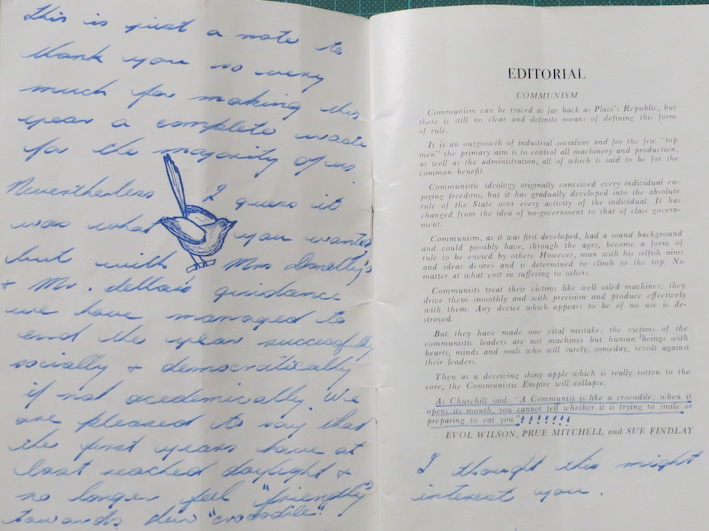 This is just a note to
thank you so very
much for making this
year a complete waste
for the majority of us
Nevertheless I guess it
was what you wanted
but with Mrs Donelly's
+ Mr. guidance
we have managed to
end the year successfully
socially + democratically
if not academically. We
are pleased to say that
the first years have at
last reached daylight +
no longer feel "friendly"
towards "crocodile!"
EDITORIAL
COMMUNISM
Communism can be traced as far back as Plato's Republic, but
there is still no clear and definite means of defining this form
of rule.
It is an outgrowth of industrial socialism and for the few "top
men" the primary aim is to control all machinery and production,
as well as the administration, all of which is said to be for the
common benefit.
Communistic ideology originally conceived every individual en-
joying freedom, but it has gradually developed into the absolute
rule of the State over every activity of the individual. It has
changed from the idea of no-government to that of class govern-
ment.
Communism, as it was first developed, had a sound background
and could possibly have, through the ages, become a form of
rule to be envied by others. However, man with his selfish aims
and ideas desires and is determined to climb to the top. No
matter at what cost in suffering to others.
Communists treat their victims like well oiled machines; they
drive them smoothly and with precision and produce effectively
with them. Any device which appears to be of no use is de-
stroyed.
But they have made one vital mistake; the victims of the
communistic leaders are not machines but human beings with
hearts, minds and souls who will surely, someday, revolt against
their leaders.
Then as a deceiving shiny apple which is really rotten to the
core, the Communistic Empire will collapse.
As Churchill said: "A Communist is like a crocodile; when it
opens its mouth, you cannot tell whether it is trying to smile or
preparing to eat you"!!!!!!!
EVOL WILSON, PRUE MITCHELL and SUE FINDLAY
I thought this might
interest you.